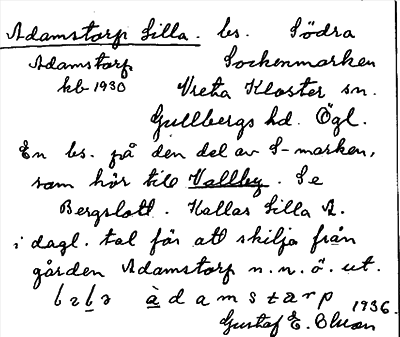 Adamstorp Lilla. bs. Södra
Adamstorp Sockenmarken
kb 1930 Vreta Kloster sn.
Gullbergs hd. Ögl.
En bs. på den del av S-marken,
som hör till Vallby. Se
Bergslott. Kallas Lilla A.
i dagl. tal för att skilja från
gården Adamstorp n.n.ö. ut.
àdamstarp 1936.
Gustaf E. Olsson